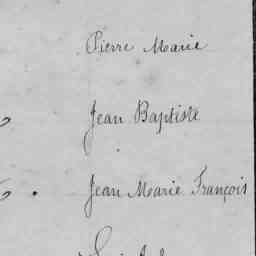 Pierre Marie
Jean Baptiste
Jean Marie François